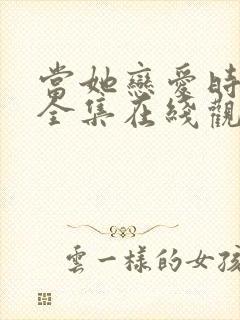 當她戀愛時
全集在綫觀
雲一樣的女孩